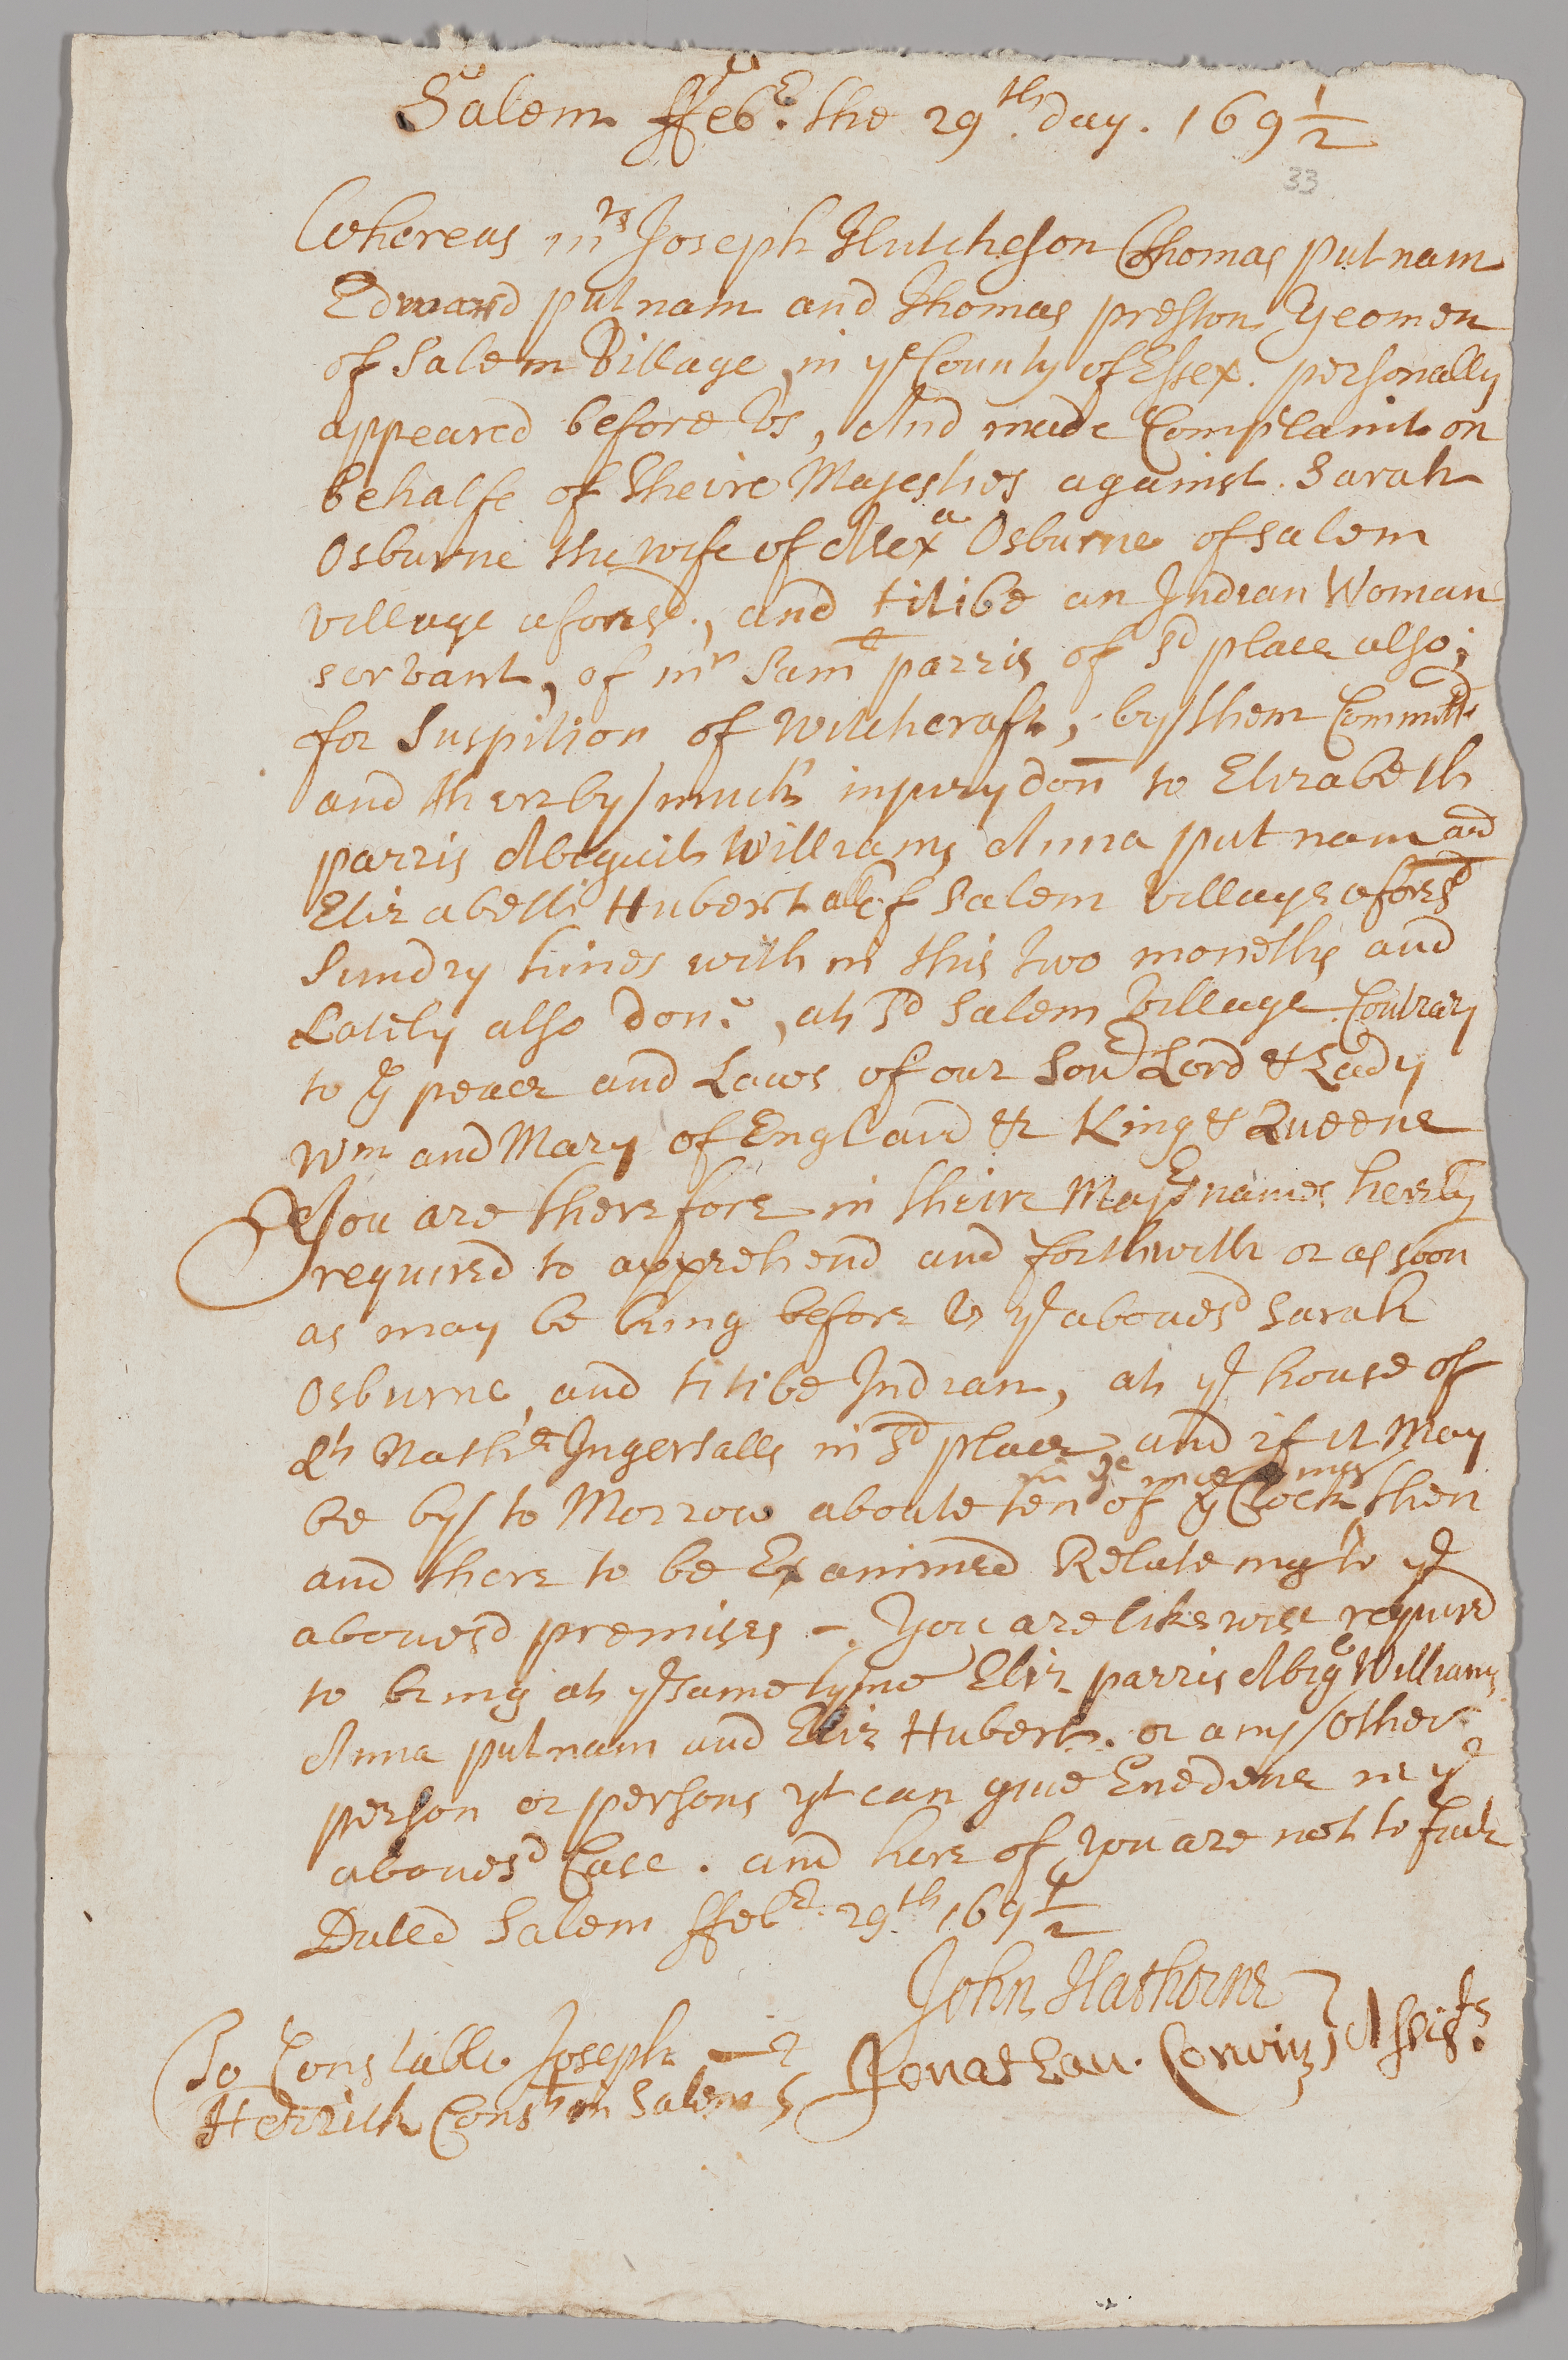 Salem ffebr. the 29th day. 169 1/2
33
Whereas mrs Joseph Hutcheson Thomas putnam
Edward putnam and Thomas preston Yeomen
of Salem Village, in ye County of Essex. personally
appeared before Us, And made Complaint on
behalfe of theire Majesties against. Sarah
Osburne the wife of Alexa Osburne of Salem
Village aforesd., and titibe an Indian Woman
servant, of mr Saml parris of sd place also;
for Suspition of Witchcraft, by them Committed
and thereby much injury don to Elizabeth
parris Abigail Williams Anna putnam and
Elizabeth Hubert all of Salem village aforesd
Sundry times with in this two moneths and
Lately also don, at sd Salem Village Contrary
to ye peace and Laws of our Sovr Lord & Lady
Wm and Mary of England &c King & Queene
You are therefore in theire Majests names hereby
required to apprehend and forthwith or as soon
as may be bring before Us ye abovesd Sarah
Osburne, and titibe Indian, at ye house of
Lt Nathll Ingersalls in sd place and if it May
be by to Morrow aboute ten of ye Clock in ye morning then
and there to be Examined Relateing to ye
abovesd premises -. You are likewise required
to bring at ye same tyme Eliz. parris Abigl Williams
Anna putnam and Eliz Hubert. or any other
person or persons yt can give Evedence in ye
abovesd Case. and here of you are not to faile
Dated Salem ffebr. 29th 169 1/2
John Hathorne
Jonathan. Corwin Assists.
To Constable Joseph
Herrick Const in Salem